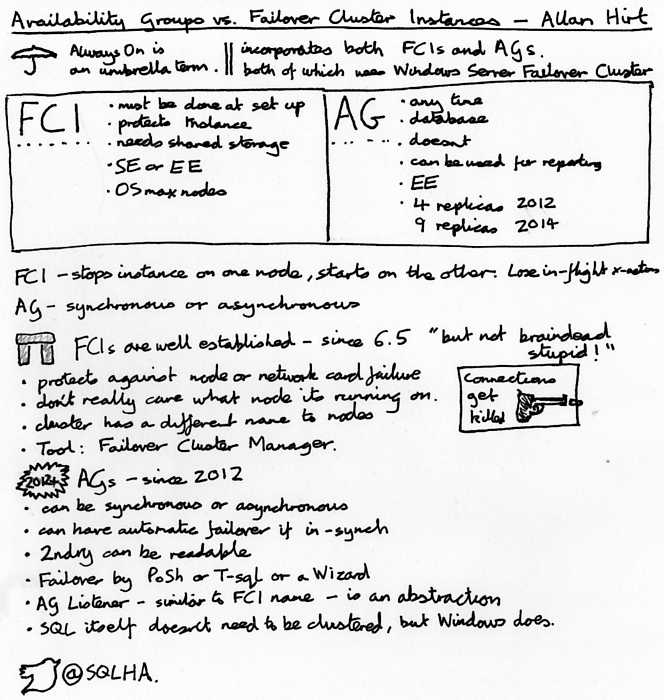 Availability Groups vs. Failover Cluster Instances – Allan Hirt
Always On is
an umbrella term.
incorporates both FCIs and AGs.
both of which uses Windows Server Failover Cluster
FCI
• must be done at set up
• protects instance
• needs shared storage
• SE or EE
• OS max nodes
AG
• any time
• database
• doesnt
• can be used for reporting
• EE
• 4 replicas 2012
9 replicas 2014
FCI – stops instance on one node, starts on the other. Lose in-flight x-actions
AG – synchronous or asynchronous
FCIs are well established – since 6.5 "but not braindead
stupid!"
• protects against node or network card failure
• don't really care what node its running on.
• cluster has a different name to nodes
• Tool: Failover Cluster Manager.
connections
get
killed
2012+ AGs – since 2012
• can be synchronous or asynchronous
• can have automatic failover if in-synch
• 2ndry can be readable
• Failover by PoSh or T-sql or a Wizard
• AG Listener – similar to FCI name – is an abstraction
• SQL itself doesn't need to be clustered, but Windows does.
@SQLHA.